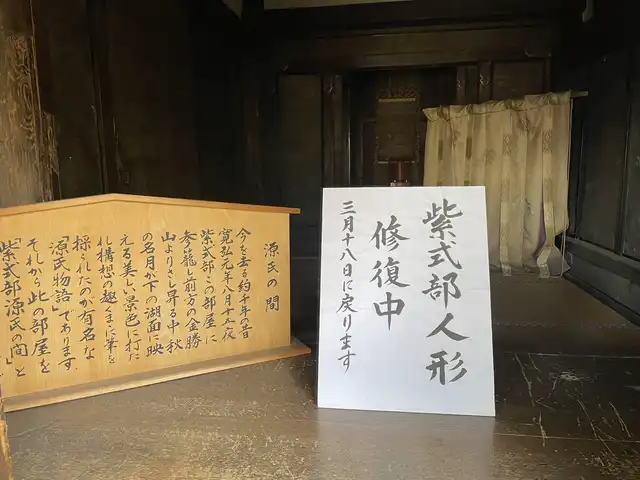 源氏の間
今を去る約千年の昔
寛弘元年八月十五夜
紫式部この部屋に
参籠し前方の金勝
山よりさし昇る中秋
の名月が下の湖面に映
える美しい景色に打た
れ構想の趣くまゝに筆を
採られたのが有名な
「源氏物語」であります。
それから此の部屋を
「紫式部源氏の間」と
紫式部人形
修復中
三月十八日に戻ります